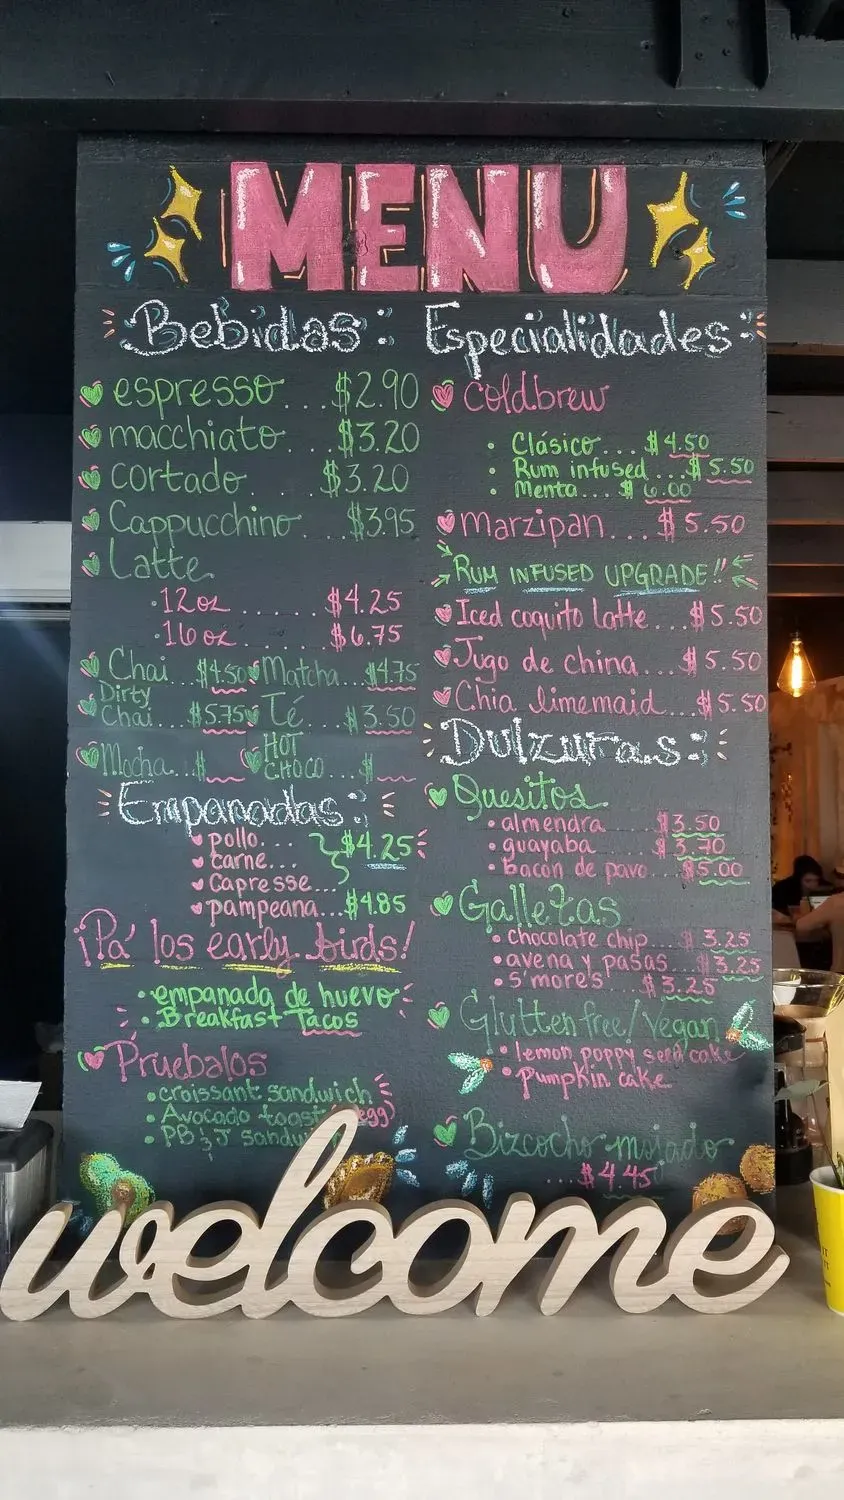 MENU
Bebidas:
espresso...$2.90
macchiato...$3.20
cortado......$3.20
Cappucchino....$3.95
Latte
12oz.....$4.25
16oz.....$6.75
Chai...$4.50
Matcha..$4.75
Dirty
Chai...$5.75
Té...$3.50
Mocha...$
HOT
CHOCO...$
Empanadas:
pollo...
carne...
$4.25
Capresse...
pampeana...$4.85
¡Pa' los early birds!
empanada de huevo
Breakfast Tacos
Pruebalos
croissant sandwich
Avocado toast egg)
PB & J
Especialidades
Coldbrew
Clásico....$4.50
Rum infused...$5.50
Menta...$6.00
Marzipan....$5.50
RUM INFUSED UPGRADE!!
Iced coquito latte...$5.50
Jugo de china....$5.50
Chia limemaid...$5.50
Dulzuras:
Quesitos
almendra $3.50
guayaba $3.70
bacon de pavo $5.00
Galletas
chocolate chip...$3.25
avena y pasas....$3.25
s'mores $3.25
Glutten free/Vegan
lemon poppy seed cake
Pumpkin cake
Bizcocho mojado
....$4.45
welcome